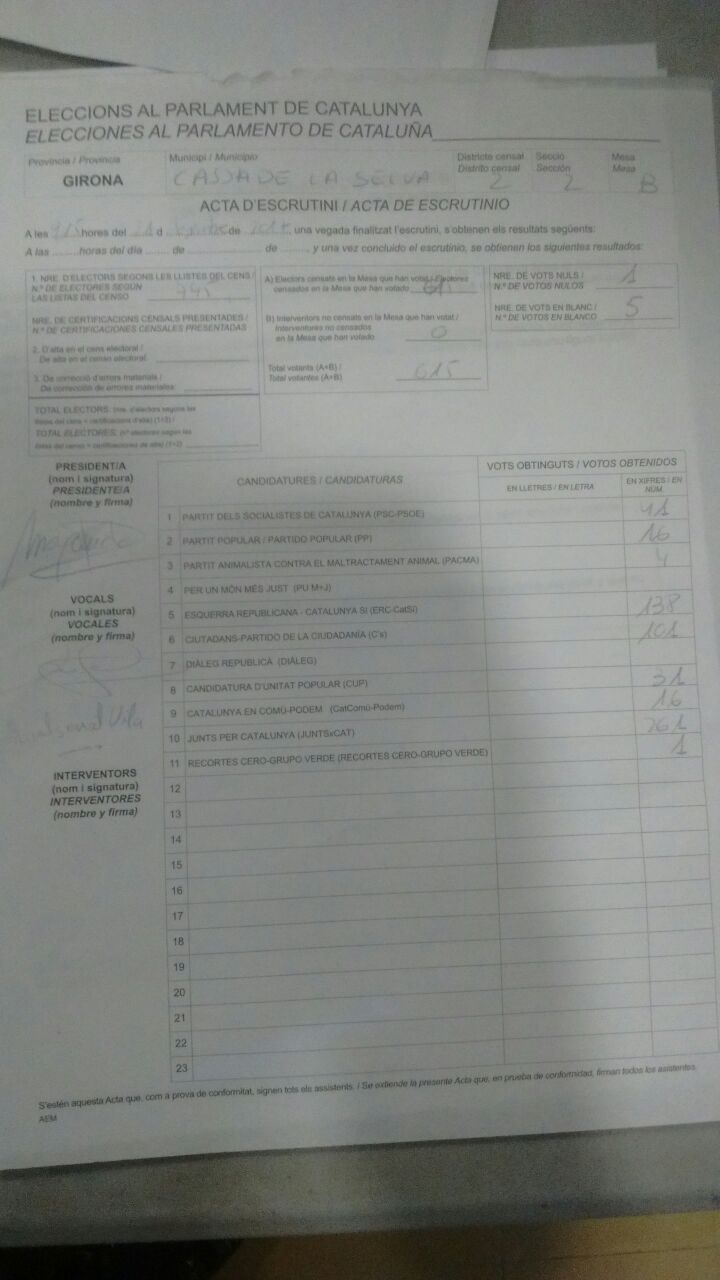 ELECCIONS AL PARLAMENT DE CATALUNYA
ELECCIONES AL PARLAMENTO DE CATALUÑA
Província / Provincia
GIRONA
Municipi / Municipio
CASSA DE LA SELVA
Districte censal
Distrito censal
2
Secció
Sección
2
Mesa
Mesa
B
ACTA D'ESCRUTINI / ACTA DE ESCRUTINIO
A les hores del 21 d de 2017 una vegada finalitzat l'escrutini, s'obtenen els resultats següents:
A las ........horas del día ...... de ........................ de ........, y una vez concluido el escrutinio, se obtienen los siguientes resultados:
1. NRE. D'ELECTORS SEGONS LES LLISTES DEL CENS /
N.º DE ELECTORES SEGÚN
LAS LISTAS DEL CENSO
NRE. DE CERTIFICACIONS CENSALS PRESENTADES /
N.º DE CERTIFICACIONES CENSALES PRESENTADAS
2. D'alta en el cens electoral /
De alta en el censo electoral:
3. De correcció d'errors materials /
De corrección de errores materiales:
TOTAL ELECTORS: (nre. d'electors segons les
llistes del cens + certificacions d'alta) (1+2) /
TOTAL ELECTORES: (nº electores según las
listas del censo + certificaciones de alta) (1+2)
A) Electors censats en la Mesa que han votat / Electores
censados en la Mesa que han votado 
B) Interventors no censats en la Mesa que han votat /
Interventores no censados
en la Mesa que han votado 0
Total votants (A+B) /
Total votantes (A+B) 615
NRE. DE VOTS NULS /
N.º DE VOTOS NULOS 1
NRE. DE VOTS EN BLANC /
N.º DE VOTOS EN BLANCO 5
PRESIDENT/A
(nom i signatura)
PRESIDENTE/A
(nombre y firma)
VOCALS
(nom i signatura)
VOCALES
(nombre y firma)
Vila
INTERVENTORS
(nom i signatura)
INTERVENTORES
(nombre y firma)
CANDIDATURES / CANDIDATURAS
VOTS OBTINGUTS / VOTOS OBTENIDOS
EN LLETRES / EN LETRA
EN XIFRES / EN NÚM.
1 PARTIT DELS SOCIALISTES DE CATALUNYA (PSC-PSOE) 41
2 PARTIT POPULAR / PARTIDO POPULAR (PP) 16
3 PARTIT ANIMALISTA CONTRA EL MALTRACTAMENT ANIMAL (PACMA) 4
4 PER UN MÓN MÉS JUST (PU M+J)
5 ESQUERRA REPUBLICANA - CATALUNYA SÍ (ERC-CatSí) 138
6 CIUTADANS-PARTIDO DE LA CIUDADANÍA (C's) 101
7 DIÀLEG REPUBLICÀ (DIÀLEG)
8 CANDIDATURA D'UNITAT POPULAR (CUP) 31
9 CATALUNYA EN COMÚ-PODEM (CatComú-Podem) 16
10 JUNTS PER CATALUNYA (JUNTSxCAT) 261
11 RECORTES CERO-GRUPO VERDE (RECORTES CERO-GRUPO VERDE) 1
12
13
14
15
16
17
18
19
20
21
22
23
S'estén aquesta Acta que, com a prova de conformitat, signen tots els assistents. / Se extiende la presente Acta que, en prueba de conformidad, firman todos los asistentes.
AEM